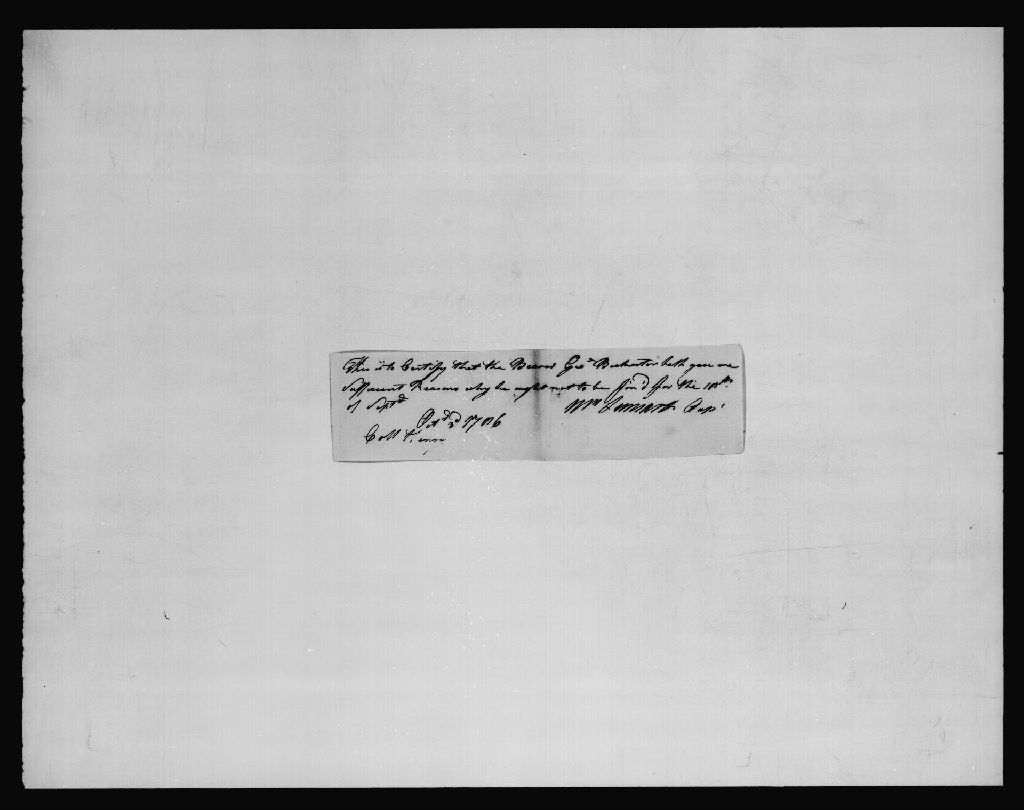 This is to Certify that the Bearer Geo Buckastor hath gave me
Suffisient Reasons why he aught not to be fin'd for the 10th
of Septr
Wm Lennard Capt
Octr 3d 1786
Coll